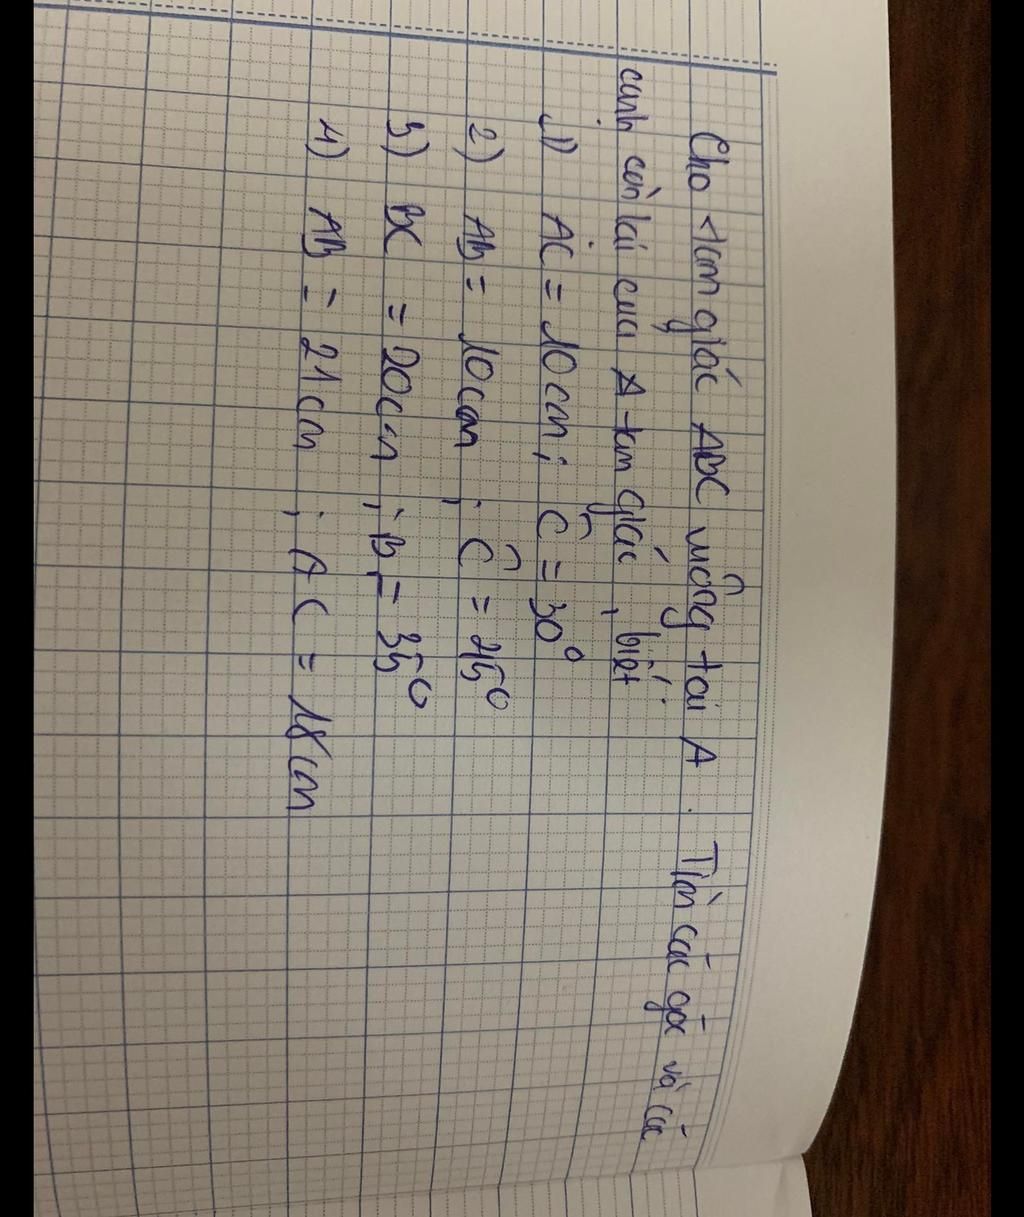 Cho tam giác ABC vuông tại A. Tìm các góc và các
cạnh còn lại của A tam giác, biết:
1) AC = 10cm; Ĉ = 30°
2) AB = 10cm; Ĉ = 45°
3) BC = 20cm; B = 35°
4) AB = 21cm; AC = 18cm